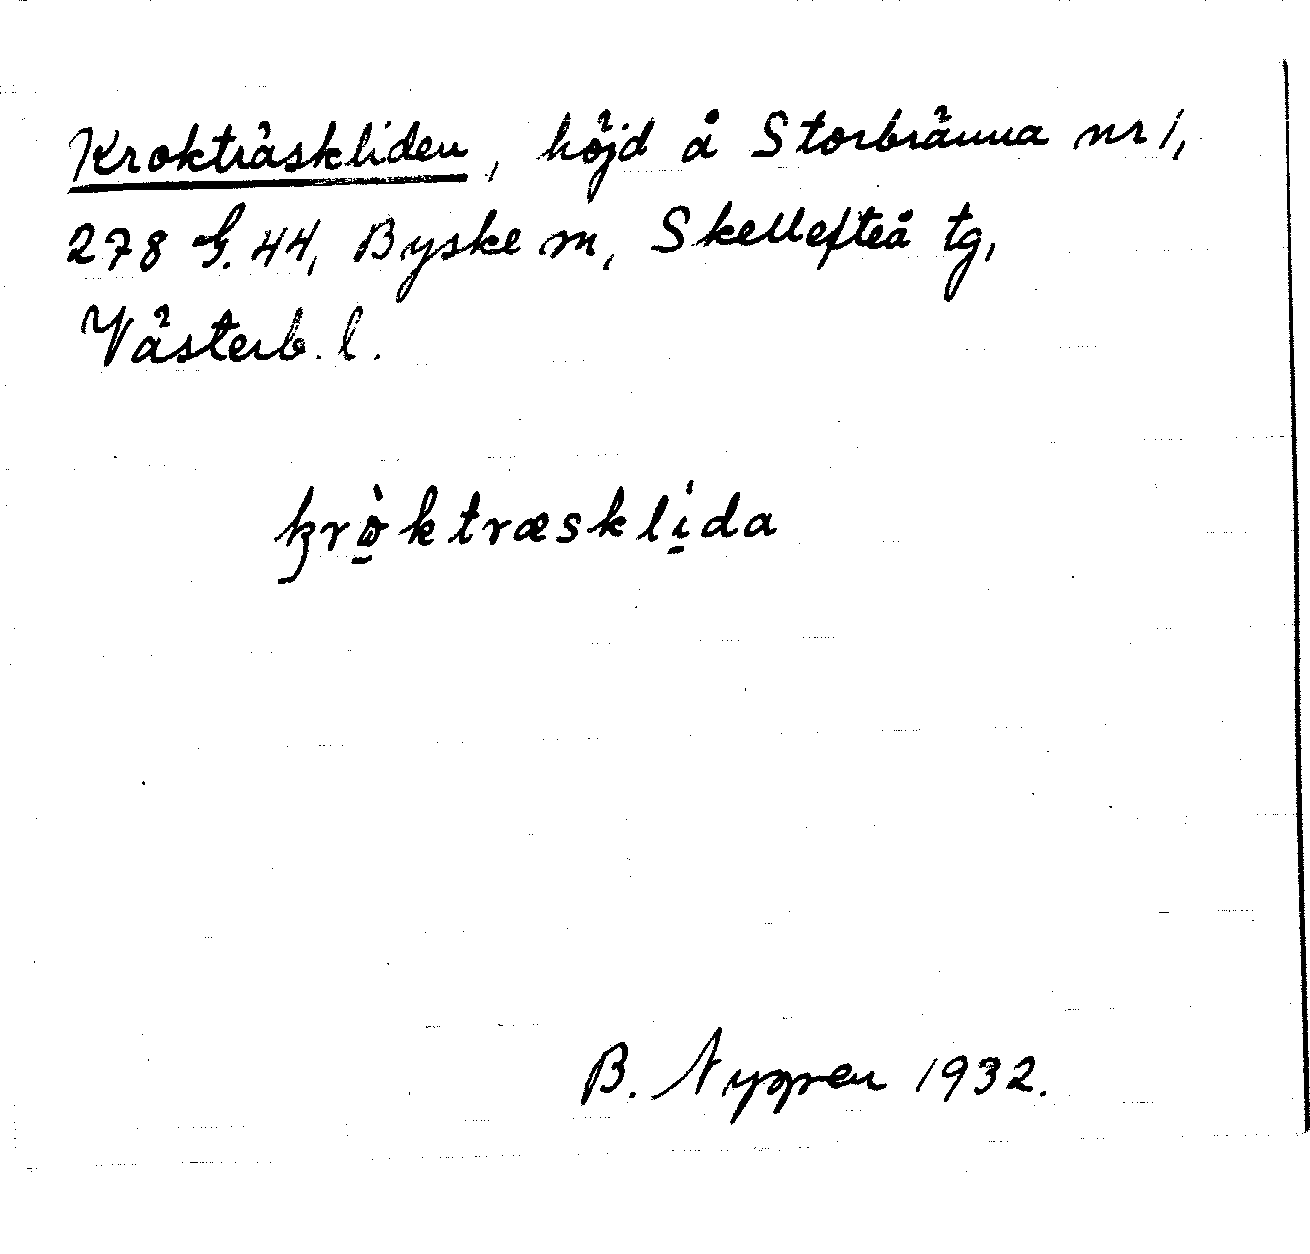 Kroktråskliden, höjd å Storbränna nr 1,
278 G. 44, Byske m, Skellefteå tg,
Västerb. l.
kròktræsklida
B. Nygren 1932.